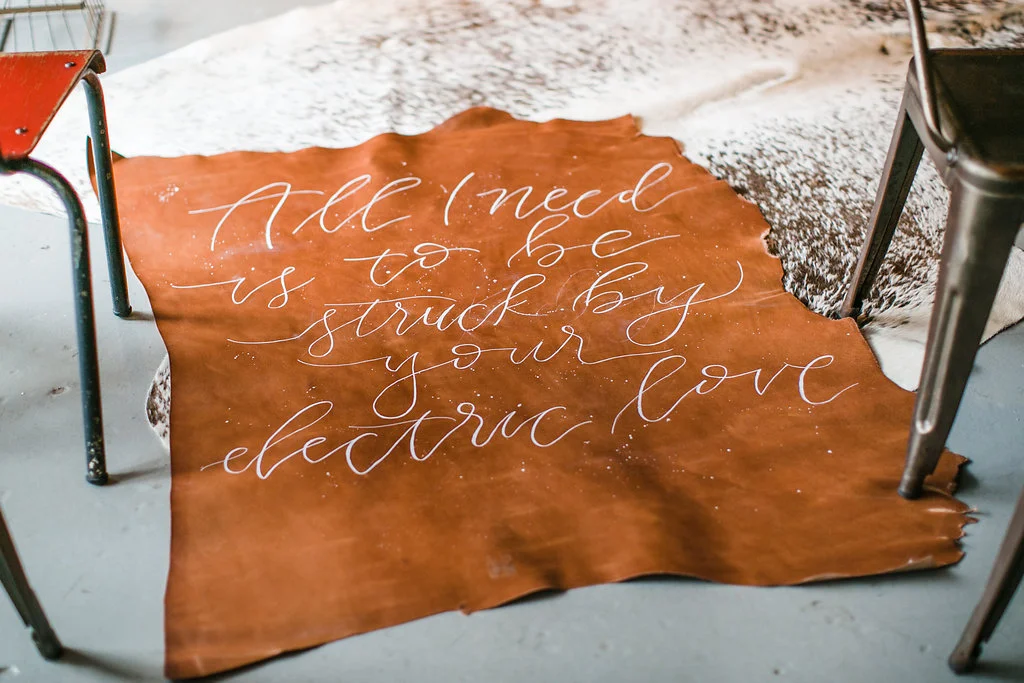 All I need
is to be
struck by
your
electric love